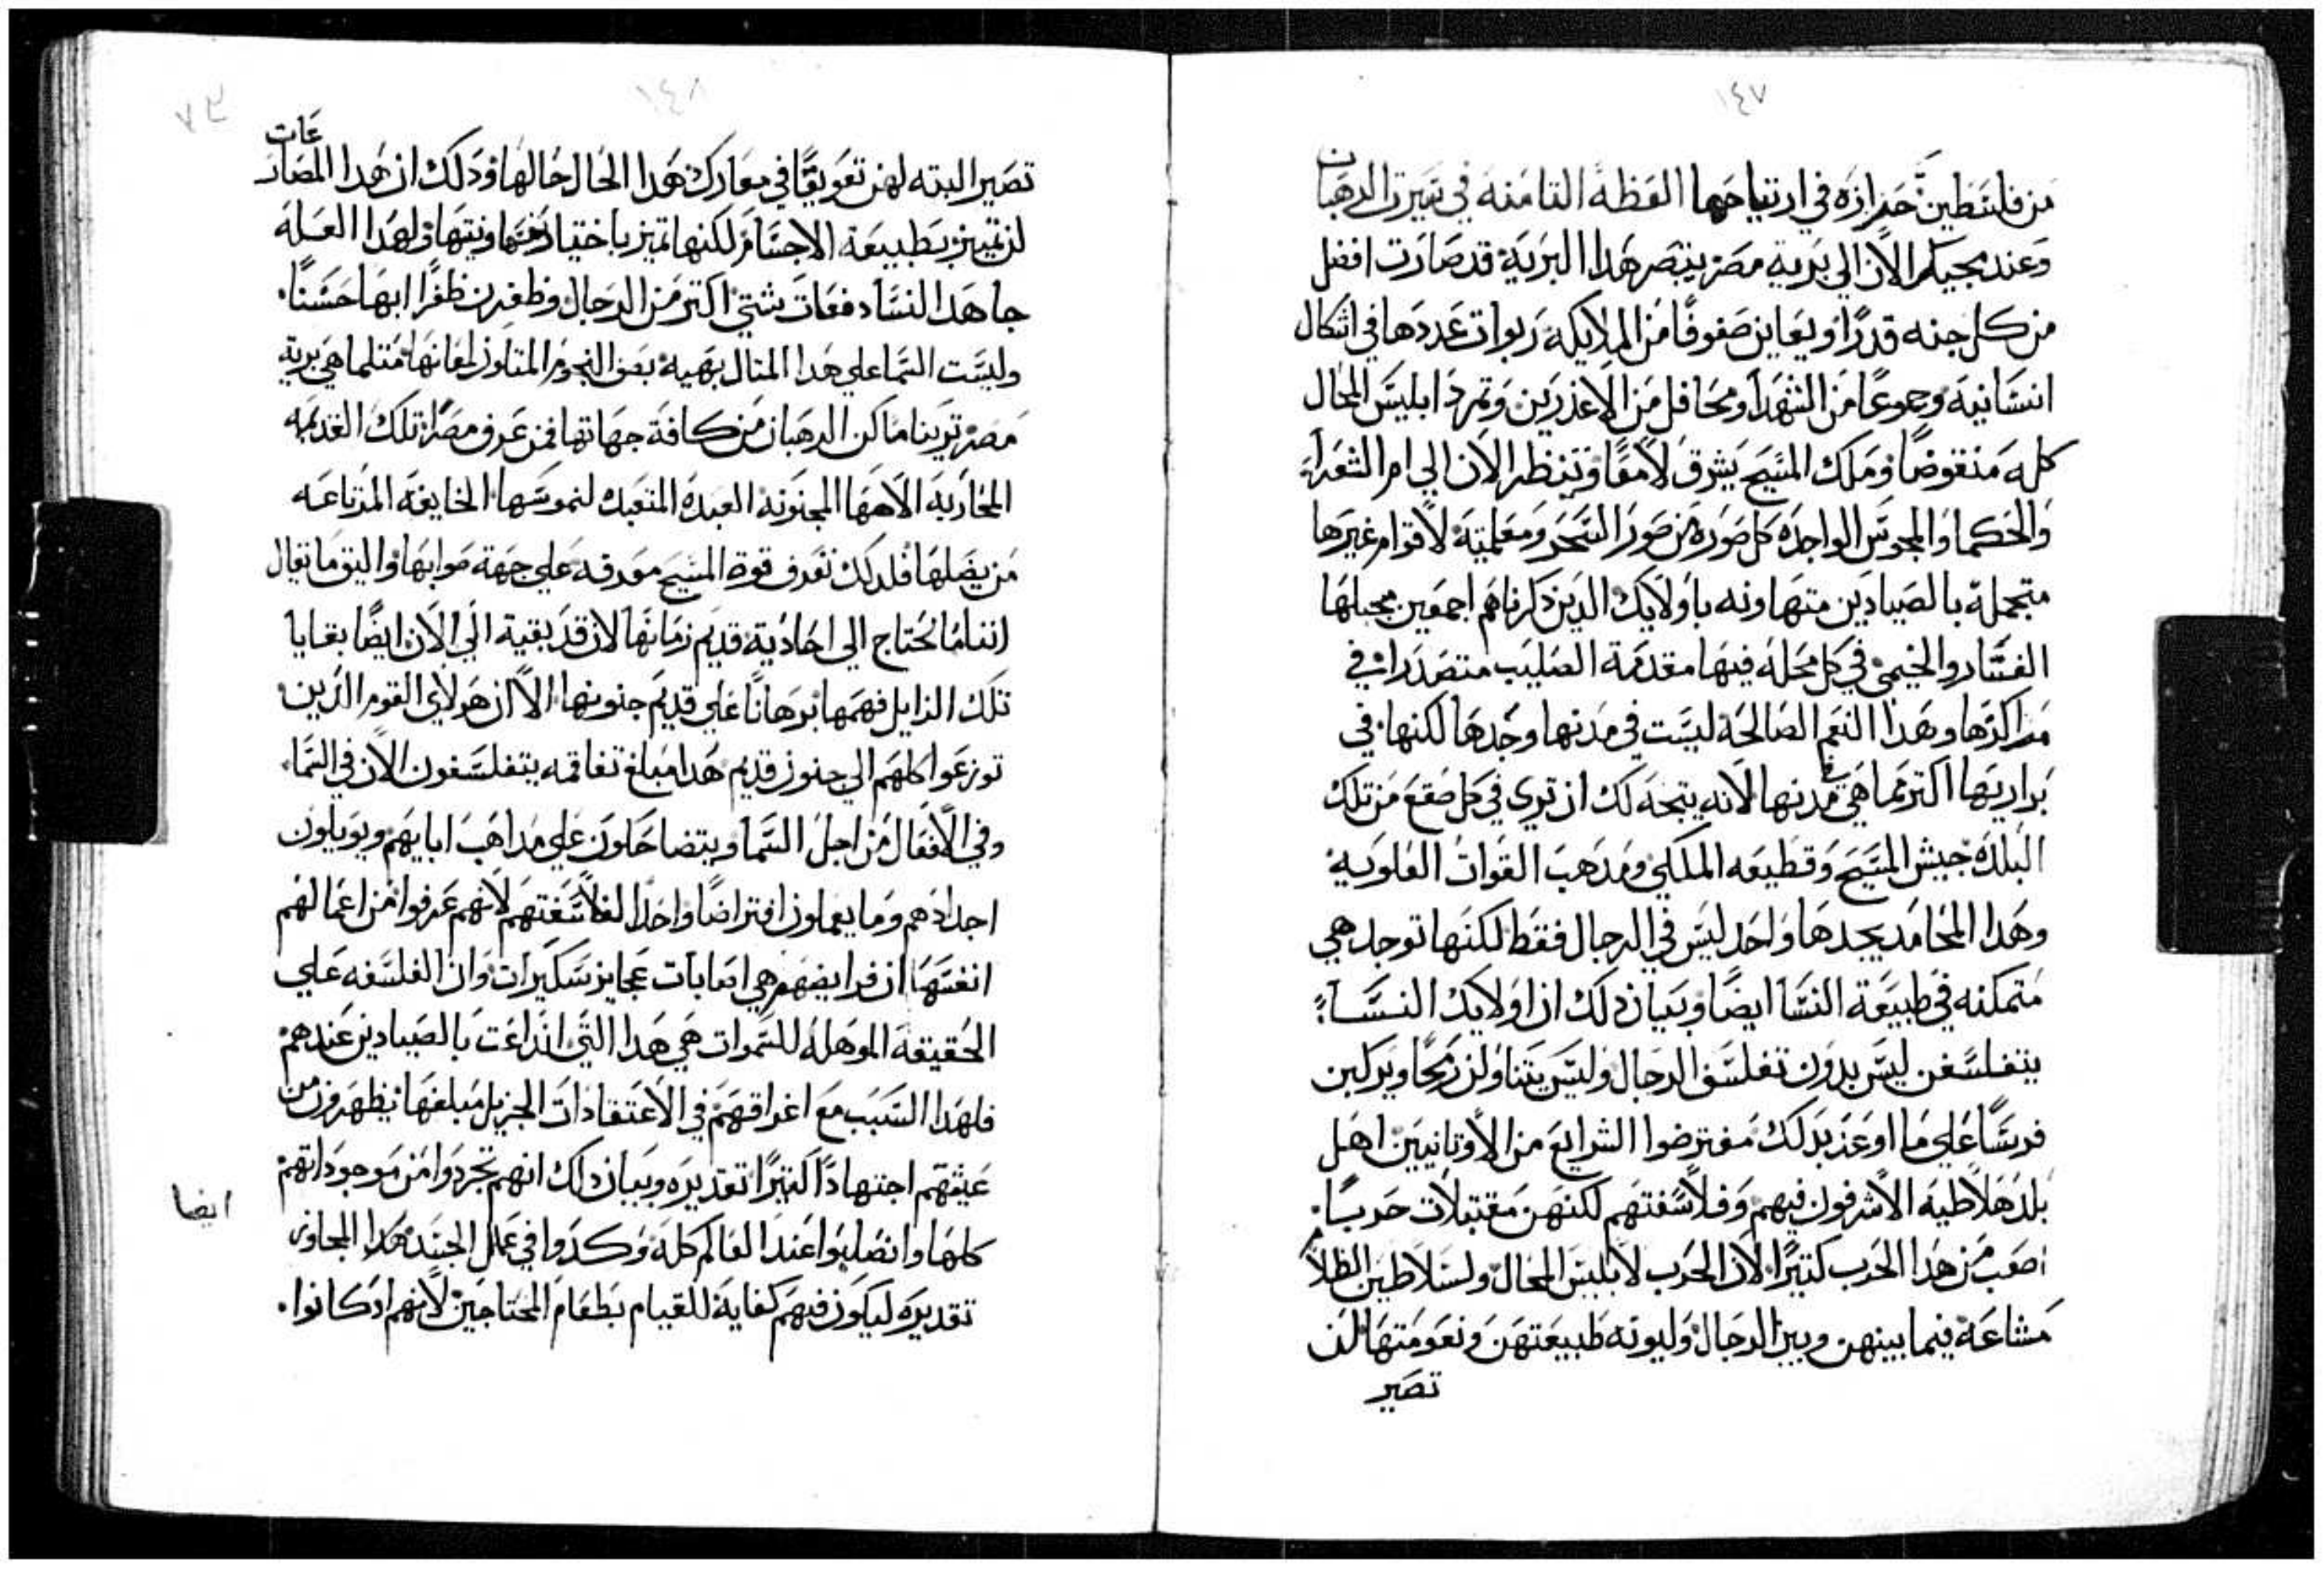 ١٤٧
من فلسطين حزازه في ارتياحها العظة التامنه في سيرت الرهبان
وعند مجيكم الان الي برية مصر يبتصر هدا البرية قد صارت افضل
من كل جنه قدرًا ويعاين صفوفًا من الملايكه ربوات عددها في اشكال
انسانيه وجموعًا من الشهدا ومحافل من الاعذرين وتمرد ابليس المحال
كله منقوضًا وملك المسيح يشرق لامعًا وتنظر الان الي ام الشعرا
والحكما والمجوس الواجده كل صوره من صور السحر ومعلميته لاقوام غيرها
متجمله بالصيادين متهاونه باولايك الدين دكرناهم اجمعين مجلها
العشار والخيمي في كل محله فيها مقدمة الصليب متصدرات في
مراكزها وهدا النعم الصالحه ليست في مدنها وحدها لكنها في
براريها اكتر مما هي في مدنها لانه يتجه لك ان تري في كل صقع من تلك
البلده جيش المسيح وقطيعه الملكي ومدهب القوات العلويه
وهدا المحامد يجدها واحد ليس في الرجال فقط لكنها توجد هي
متمكنه في طبيعة النسا ايضًا وبيان دلك ان اولايك النسا
يتفلسفن ليس بدون تفلسف الرجال وليس يتناولن رمحًا ويركبن
فرسًا علي ما اوعز بدلك مفترضوا الشرايع من الاوتانيين اهل
بلد هلاطيه الاشرفون فيهم وفلاسفتهم لكنهن مقتبلات حربًا
اصعب من هدا الحرب كتيرًا لان الحرب لابليس المحال ولسلاطين الظلام
مشاعة فيما بينهن وبين الرجال وليونه طبيعتهن ونعومتها لن
تصير
١٤٨
٧٣
تصير البته لهن تعويقًا في معارك هدا الحال حالها ودلك ان هدا المصارعات
لن تميز بطبيعة الاجسام لكنها تميز باختيار نفسها ونيتها ولهدا العله
جاهد النسا دفعات شتي اكتر من الرجال وظفرن ظفرًا ابها حسنًا
وليست السما علي هدا المتال بهيه بصف النجوم المتاوز لمعانها متلما هي برية
مصر تورينا ماكن الرهبان من كافة جهاتها فمن عرف مصر تلك القديمه
المحاربة الاهها المجنونه العبده المتعبد لنموسها الخايفه المرتاعه
من بصلها فلدلك تعرف قوة المسيح معرفه علي جهة صوابها واليق ما تقال
اننا ما نحتاج الي احاديت قديم زمانها لان قد بقية الي الان ايضًا بقايا
تلك الزايل فهمها برهانًا علي قديم جنونها الا ان هولاي القوم الدين
توزعوا كلهم الي جنون قديم هدا مبلغ تفاقمه يتفلسفون الان في السما
وفي الافعال من اجل السما ويتضاحكون علي مداهب ابايهم ويويلون
اجدادهم وما يعملون افتراضًا واحدا لفلاسفتهم لانهم عرفوا من اعمالهم
انفسها ان فرايضهم هي لعابات عجايز سكيرات وان الفلسفه علي
الحقيقه الموهله للسموات هي هدا التي انداعت بالصيادين عندهم
فلهدا السبب مع اغراقهم في الاعتقادات الجزيل مبلغها يظهرون من
عيشهم اجتهادًا كتيرًا تقديره وبيان داك انهم تجردوا من موجوداتهم
كلها وانصلبوا عند العالم كله وكدوا في عمل الجسد هدا المجاوز
تقديره ليكون فيهم كفاية للقيام بطعام المحتاجين لانهم اد كانوا
ايضا